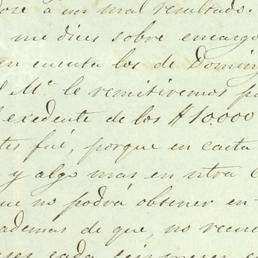 á un mal resultado.
me dices sobre encargo
en cuenta los de Doming
Mº. le remitiremos p
exedente de los $10.000
tes fué, porque en carta
y algo mas en ntra C
ue no podrá obtener en
ademas de que no recue
cada